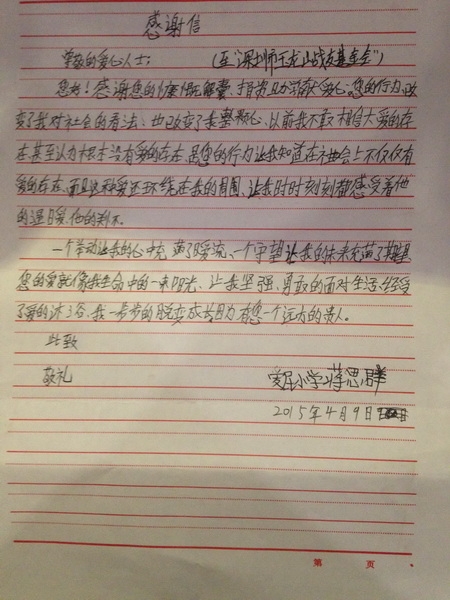 感谢信
尊敬的爱心人士：（至“深圳市玉龙山战友基金会”）
您好！感谢您的慷慨解囊、捐资助 献爱心，您的行为改
变了我对社会的看法、也改变了我整颗心，以前我不敢相信大爱的存
在，甚至认为根本没有爱的存在，是您的行为让我知道在社会上不仅仅有
爱的存在，而且这种爱还环绕在我的周围，让我时时刻刻都感受着他
的温暖、他的
一个举动让我的心中充满了暖流、一个守望让我的未来充满了期望
您的爱就像我生命中的一束阳光，让我坚强、勇敢的面对生活、经受
了爱的沐浴、我一步步的脱变成长因为有您一个远方的贵人。
此致
敬礼
小学：蒋思群
2015年4月9日
第 页